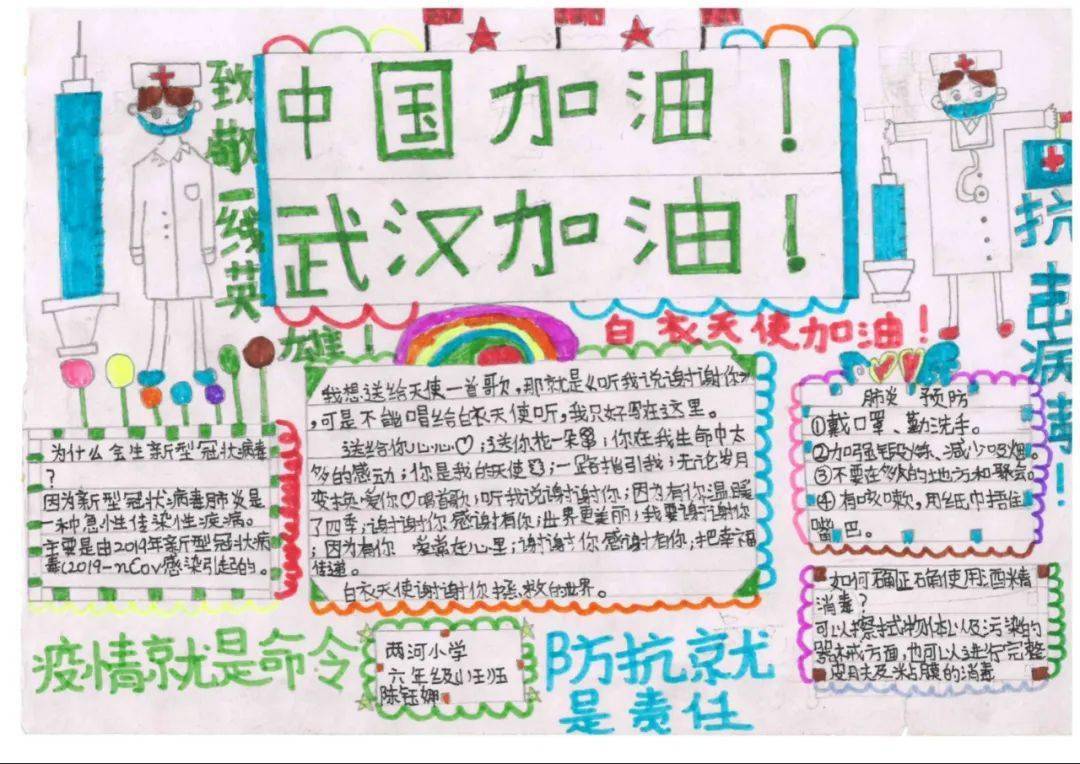 中国加油！
武汉加油！
致敬一线英
雄！
抗击病毒！
白衣天使加油！
为什么会生新型冠状病毒
？
因为新型冠状病毒肺炎是
一种急性传染性疾病。
主要是由2019年新型冠状病
毒(2019-nCov感染引起的。
我想送给天使一首歌，那就是《听我说谢谢你》
，可是不能唱给白衣天使听，我只好写在这里。
送给你心心♡；送你花一朵；你在我生命中太
多的感动；你是我的天使；一路指引我；无论岁月
变换爱你♡唱首歌；听我说谢谢你；因为有你温暖
了四季；谢谢你感谢有你；世界更美丽；我要谢谢你
；因为有你 爱常在心里；谢谢你感谢有你；把幸福
传递。
白衣天使谢谢你拯救的世界。
肺炎 预防
①戴口罩、勤洗手。
②加强锻炼、减少吸烟。
③不要在多人的地方和聚会。
④有咳嗽，用纸巾捂住
嘴巴。
如何确正确使用酒精
消毒？
可以擦拭物体以及污染的
器械方面，也可以进行完整
皮肤及粘膜的消毒
疫情就是命令
两河小学
六年级
陈钰娜
防抗就尤
是责任